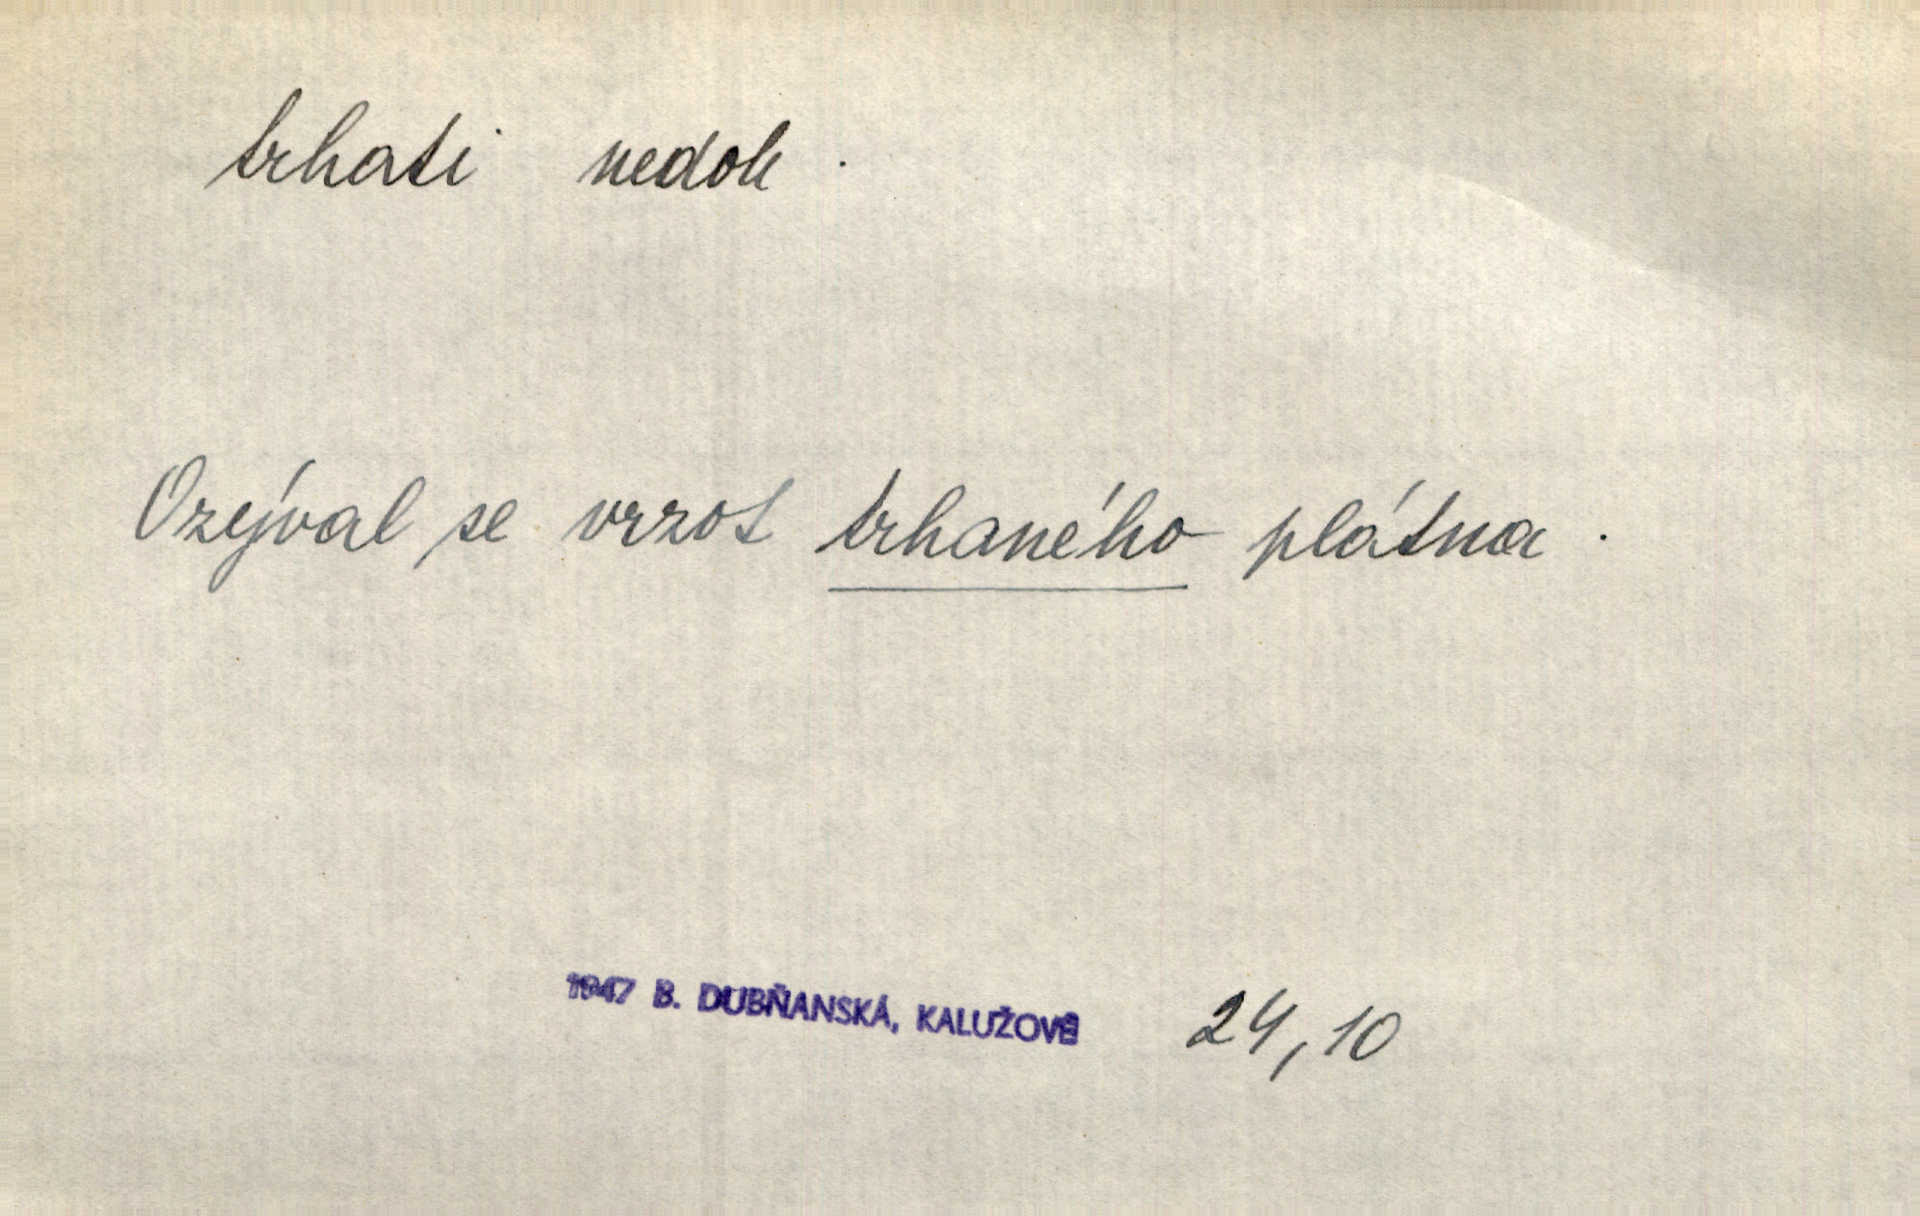 trhati nedok.
Ozýval se vrzot trhaného plátna.
1947 B. DUBŇANSKÁ, KALUŽOVÉ 24,10